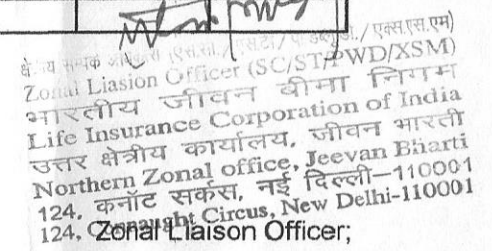 क्षेत्रीय सम्पर्क अधिकारी (एस.सी./एस.टी/पी डब्ल्यू.डी./एक्स.एस.एम)
Zonal Liasion Officer (SC/ST/PWD/XSM)
भारतीय जीवन बीमा निगम
Life Insurance Corporation of India
उत्तर क्षेत्रीय कार्यालय, जीवन भारती
Northern Zonal office, Jeevan Bharti
124, कनॉट सर्कस, नई दिल्ली–110001
124, Connaught Circus, New Delhi-110001
Zonal Liaison Officer;